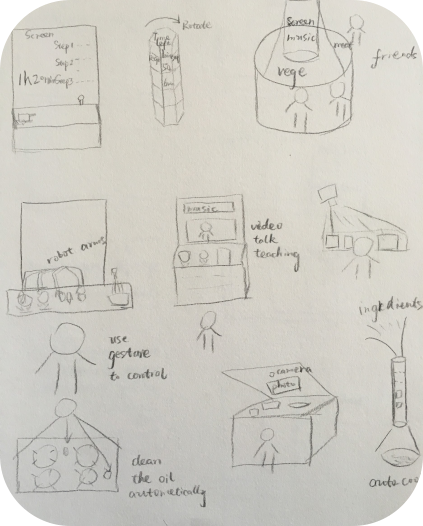 Screen
Step1
Step2
Step3
Rotate
Screen
music
meat
vege
friends
robot arms
music
video
talk
teaching
use
gestare
to control
ingredients
camera
photo
clean
the oil
automatically